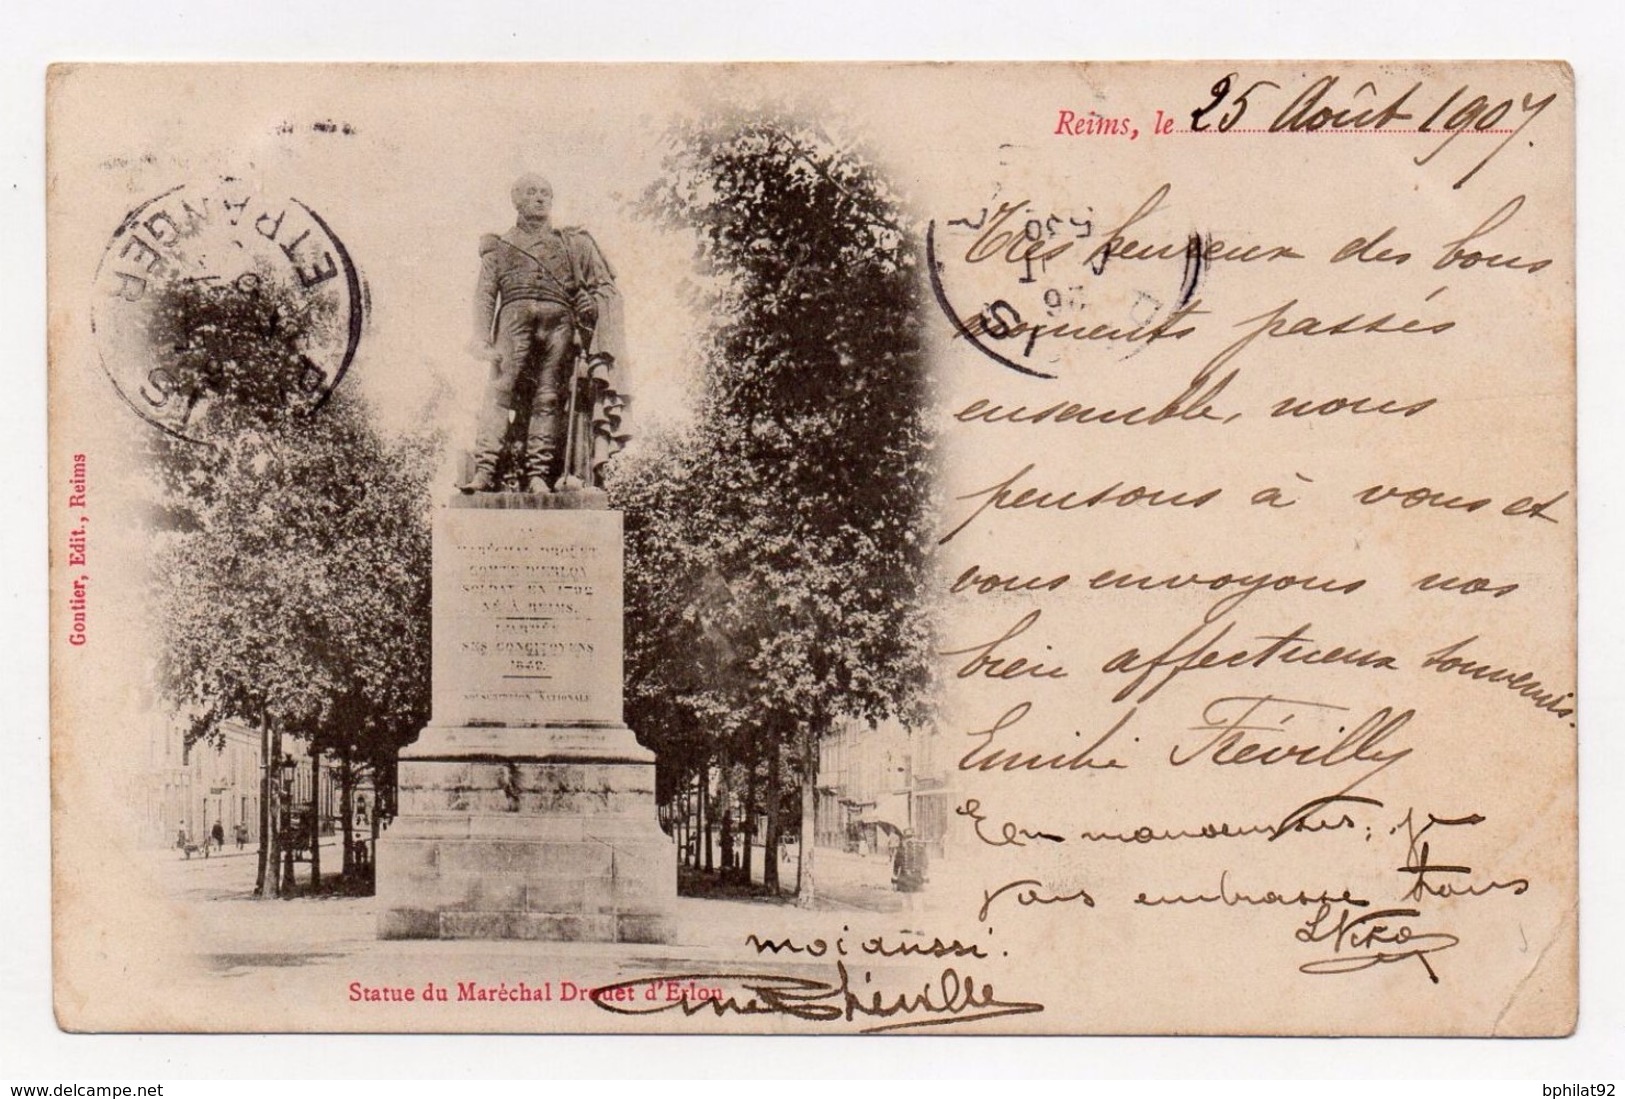 Reims, le 25 Août 1907.
Très heureux des bons
moments passés
ensemble, nous
pensons à vous et
vous envoyons nos
bien affectueux souvenirs.
Emilie Trévilly
je
vous embrasse tous
moi aussi.
PARIS
ETRANGER
MARÉCHAL DROUET
COMTE D'ERLON
SOLDAT EN 1792
NÉ À REIMS.
SES CONCITOYENS
1849.
SOUSCRIPTION NATIONALE
Gontier, Edit., Reims
Statue du Maréchal Drouet d'Erlon
www.delcampe.net
bphilat92